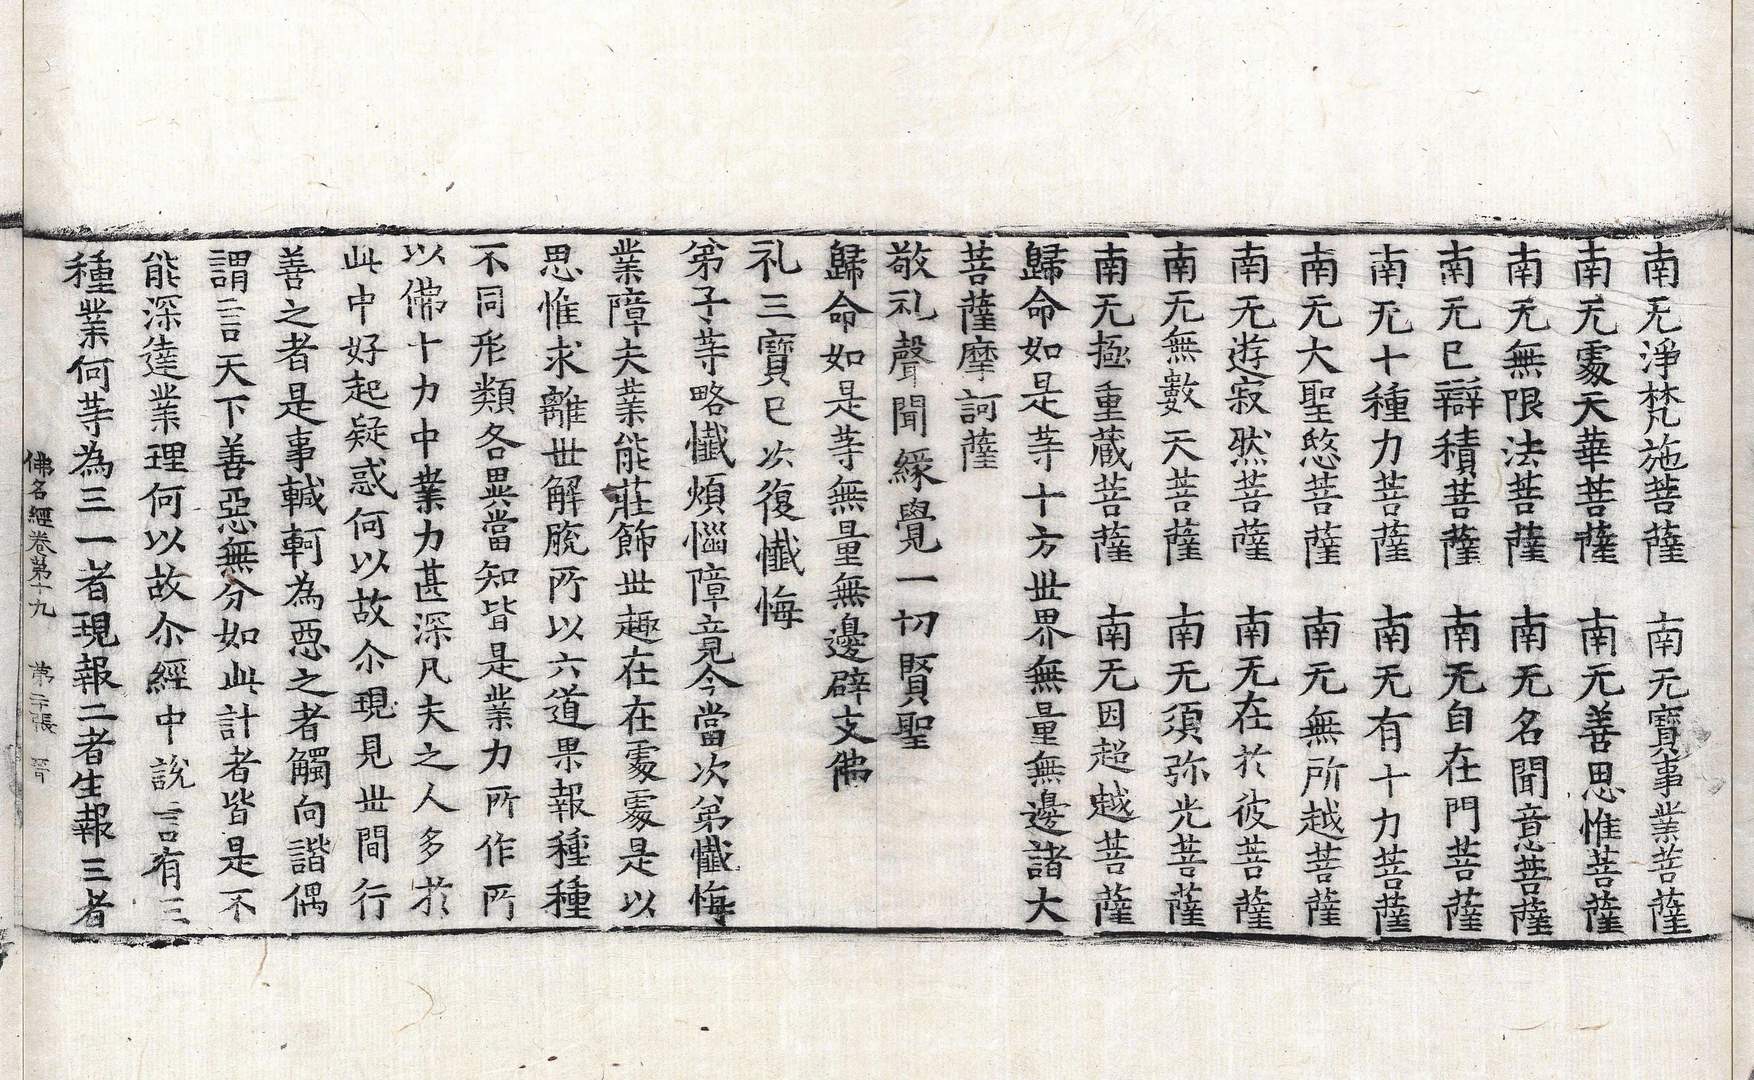 南无淨梵施菩薩　南无寶事業菩薩
南无處天華菩薩　南无善思惟菩薩
南无無限法菩薩　南无名聞意菩薩
南无巳辯積菩薩　南无自在門菩薩
南无十種力菩薩　南无有十力菩薩
南无大聖愍菩薩　南无無所越菩薩
南无遊寂然菩薩　南无在於彼菩薩
南无無數天菩薩　南无須弥光菩薩
南无極重藏菩薩　南无因超越菩薩
歸命如是等十方世界無量無邊諸大
菩薩摩訶薩
敬礼聲聞緣覺一切賢聖
歸命如是等無量無邊辟支佛
礼三寶巳次復懺悔
弟子等略懺煩惱障竟今當次第懺悔
業障夫業能莊飾世趣在在處處是以
思惟求離世解脫所以六道果報種種
不同形類各異當知皆是業力所作所
以佛十力中業力甚深凡夫之人多於
此中好起疑惑何以故尒現見世間行
善之者是事轗軻為惡之者觸向諧偶
謂言天下善惡無分如此計者皆是不
能深達業理何以故尒經中說言有三
種業何等為三一者現報二者生報三者
佛名經卷第十九　第二十張